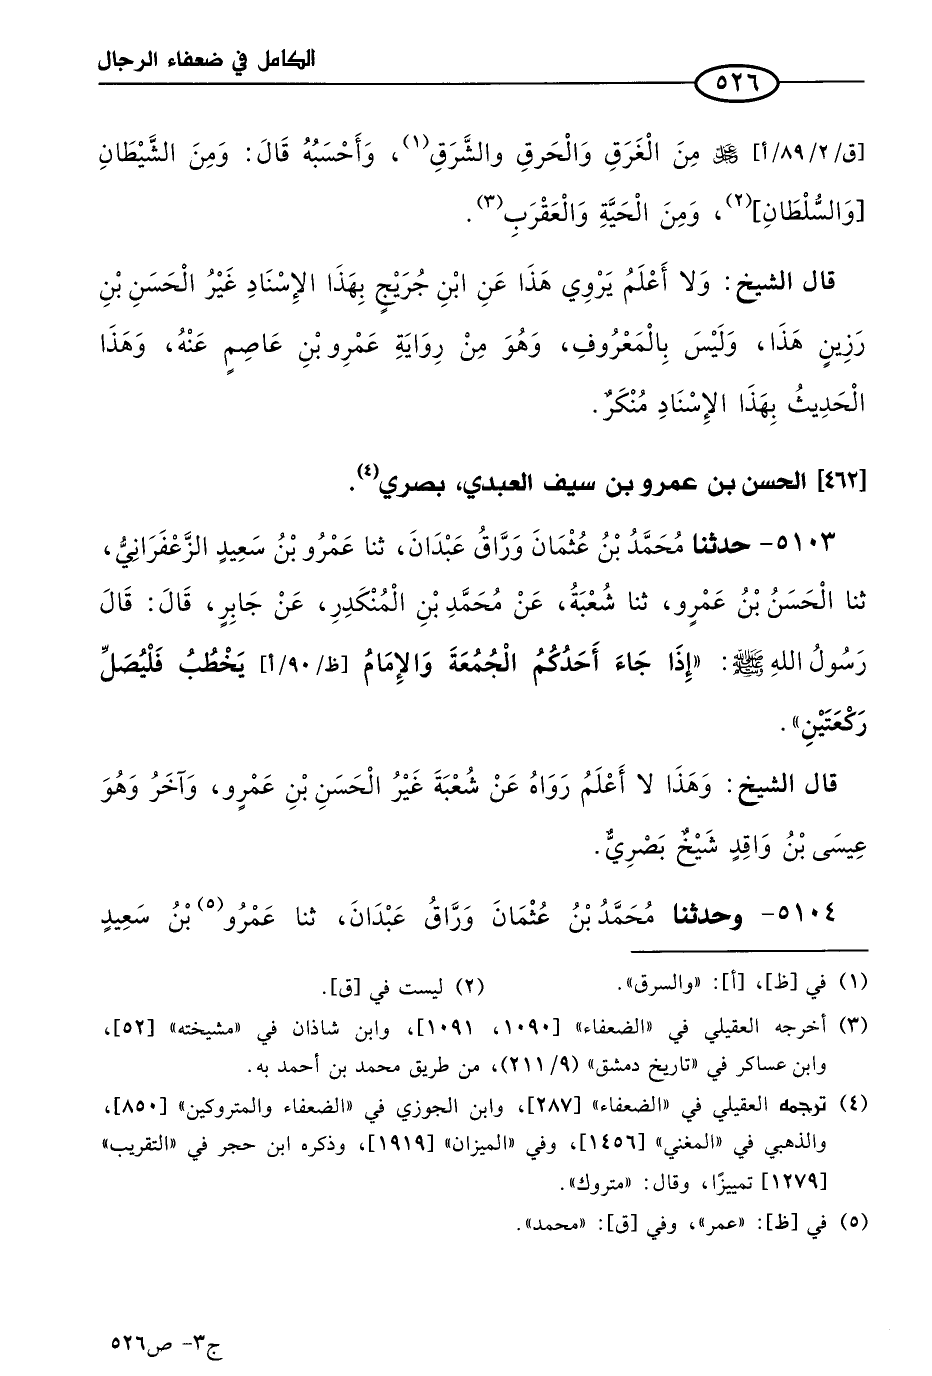 الكامل في ضعفاء الرجال
٥٢٦
[ق/٨٩/٢/أ] ﷺ مِنَ الْغَرَقِ وَالْحَرقِ والشَّرَقِ(١)، وَأَحْسَبُهُ قَالَ: وَمِنَ الشَّيْطَانِ
[وَالسُّلْطَانِ](٢)، وَمِنَ الْحَيَّةِ وَالْعَقْرَبِ(٣).
قال الشيخ: وَلا أَعْلَمُ يَرْوِي هَذَا عَنِ ابْنِ جُرَيْجٍ بِهَذَا الإِسْنَادِ غَيْرُ الْحَسَنِ بْنِ
رَزِينٍ هَذَا، وَلَيْسَ بِالْمَعْرُوفِ، وَهُوَ مِنْ رِوَايَةِ عَمْرِو بْنِ عَاصِمٍ عَنْهُ، وَهَذَا
الْحَدِيثُ بِهَذَا الإِسْنَادِ مُنْكَرٌ.
[٤٦٢] الحسن بن عمرو بن سيف العبدي، بصري(٤).
٥١٠٣- حدثنا مُحَمَّدُ بْنُ عُثْمَانَ وَرَّاقُ عَبْدَانَ، ثنا عَمْرُو بْنُ سَعِيدٍ الزَّعْفَرَانِيُّ،
ثنا الْحَسَنُ بْنُ عَمْرٍو، ثنا شُعْبَةُ، عَنْ مُحَمَّدِ بْنِ الْمُنْكَدِرِ، عَنْ جَابِرٍ، قَالَ: قَالَ
رَسُولُ اللهِ ﷺ: «إِذَا جَاءَ أَحَدُكُمُ الْجُمُعَةَ وَالإِمَامُ [ظ/٩٠/أ] يَخْطُبُ فَلْيُصَلِّ
رَكْعَتَيْنِ».
قال الشيخ: وَهَذَا لا أَعْلَمُ رَوَاهُ عَنْ شُعْبَةَ غَيْرُ الْحَسَنِ بْنِ عَمْرٍو، وَآخَرُ وَهُوَ
عِيسَى بْنُ وَاقِدٍ شَيْخٌ بَصْرِيٌّ.
٥١٠٤- وحدثنا مُحَمَّدُ بْنُ عُثْمَانَ وَرَّاقُ عَبْدَانَ، ثنا عَمْرُو(٥) بْنُ سَعِيدٍ
(١) في [ظ]، [أ]: «والسرق». (٢) ليست في [ق].
(٣) أخرجه العقيلي في «الضعفاء» [١٠٩٠، ١٠٩١]، وابن شاذان في «مشيخته» [٥٢]،
وابن عساكر في «تاريخ دمشق» (٢١١/٩)، من طريق محمد بن أحمد به.
(٤) ترجمه العقيلي في «الضعفاء» [٢٨٧]، وابن الجوزي في «الضعفاء والمتروكين» [٨٥٠]،
والذهبي في «المغني» [١٤٥٦]، وفي «الميزان» [١٩١٩]، وذكره ابن حجر في «التقريب»
[١٢٧٩] تمييزًا، وقال: «متروك».
(٥) في [ظ]: «عمر»، وفي [ق]: «محمد».
ج٣- ص٥٢٦